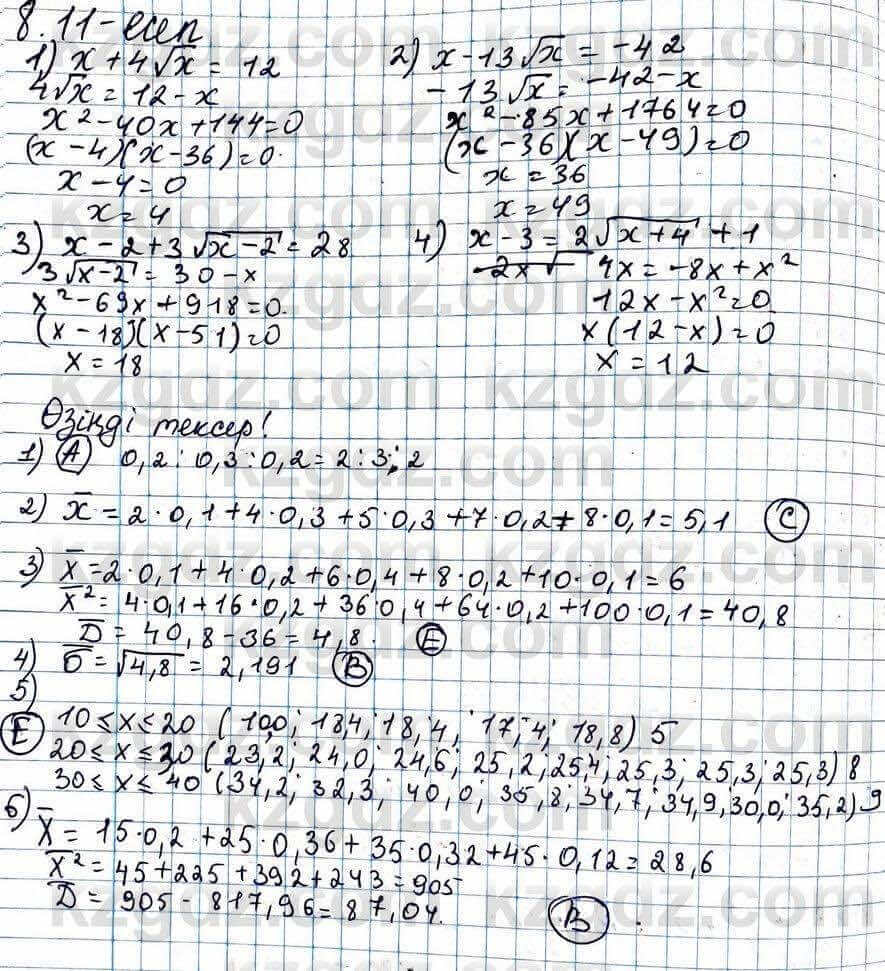 8.11-есеп
1) x + 4√x = 12
4√x = 12 - x
x² - 40x + 144 = 0
(x - 4)(x - 36) = 0.
x - 4 = 0
x = 4
2) x - 13√x = -42
-13√x = -42 - x
x² - 85x + 1764 = 0
(x - 36)(x - 49) = 0
x = 36
x = 49
3) x - 2 + 3√x-2 = 28
3√x-2 = 30 - x
x² - 69x + 918 = 0.
(x - 18)(x - 51) = 0
x = 18
4) x - 3 = 2√x+4 + 1
4x = -8x + x²
12x - x² = 0
x(12 - x) = 0
x = 12
Өзіңді тексер!
1) A) 0,2 : 0,3 : 0,2 = 2 : 3 : 2
2) x̄ = 2·0,1 + 4·0,3 + 5·0,3 + 7·0,2 + 8·0,1 = 5,1 C
3) x̄ = 2·0,1 + 4·0,2 + 6·0,4 + 8·0,2 + 10·0,1 = 6
x̄² = 4·0,1 + 16·0,2 + 36·0,4 + 64·0,2 + 100·0,1 = 40,8
D = 40,8 - 36 = 4,8. E
4) б = √4,8 = 2,191 B
5)
E 10 ≤ x ≤ 20 (10,0; 18,4; 18,4; 17,4; 18,8) 5
20 ≤ x ≤ 30 (23,2; 24,0; 24,6; 25,2; 25,4; 25,3; 25,3; 25,3) 8
30 ≤ x ≤ 40 (34,2; 32,3; 40,0; 35,8; 34,7; 34,9; 30,0; 35,2) 9
6) x̄ = 15·0,2 + 25·0,36 + 35·0,32 + 45·0,12 = 28,6
x̄² = 45 + 225 + 392 + 243 = 905
D = 905 - 817,96 = 87,04.
B
kzgdz.com